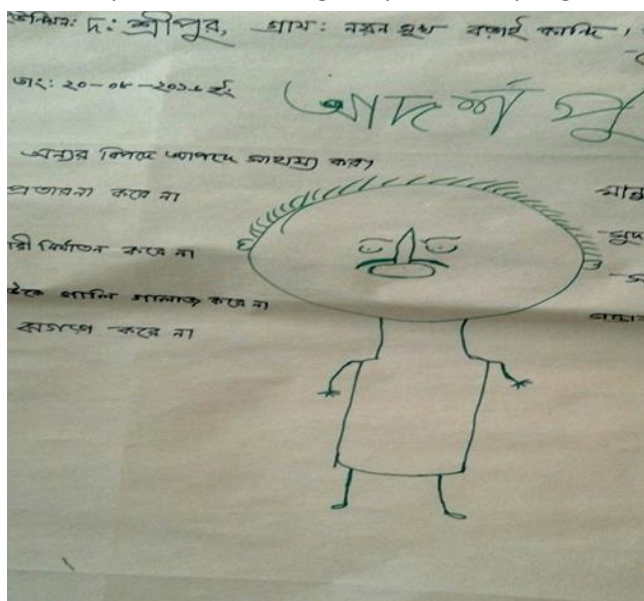 ইউনিয়ন: দ: শ্রীপুর, গ্রাম: নয়ন সুখ বড়াই কান্দি।
তাং: ২০-০৮-২০১৮ ইং
আদর্শ পু
অন্যের বিপদে আপদে সাহায্য করে।
প্রতারনা করে না
রী নির্যাতন করে না
গালি গালাজ করে না
ঝগড়া করে না